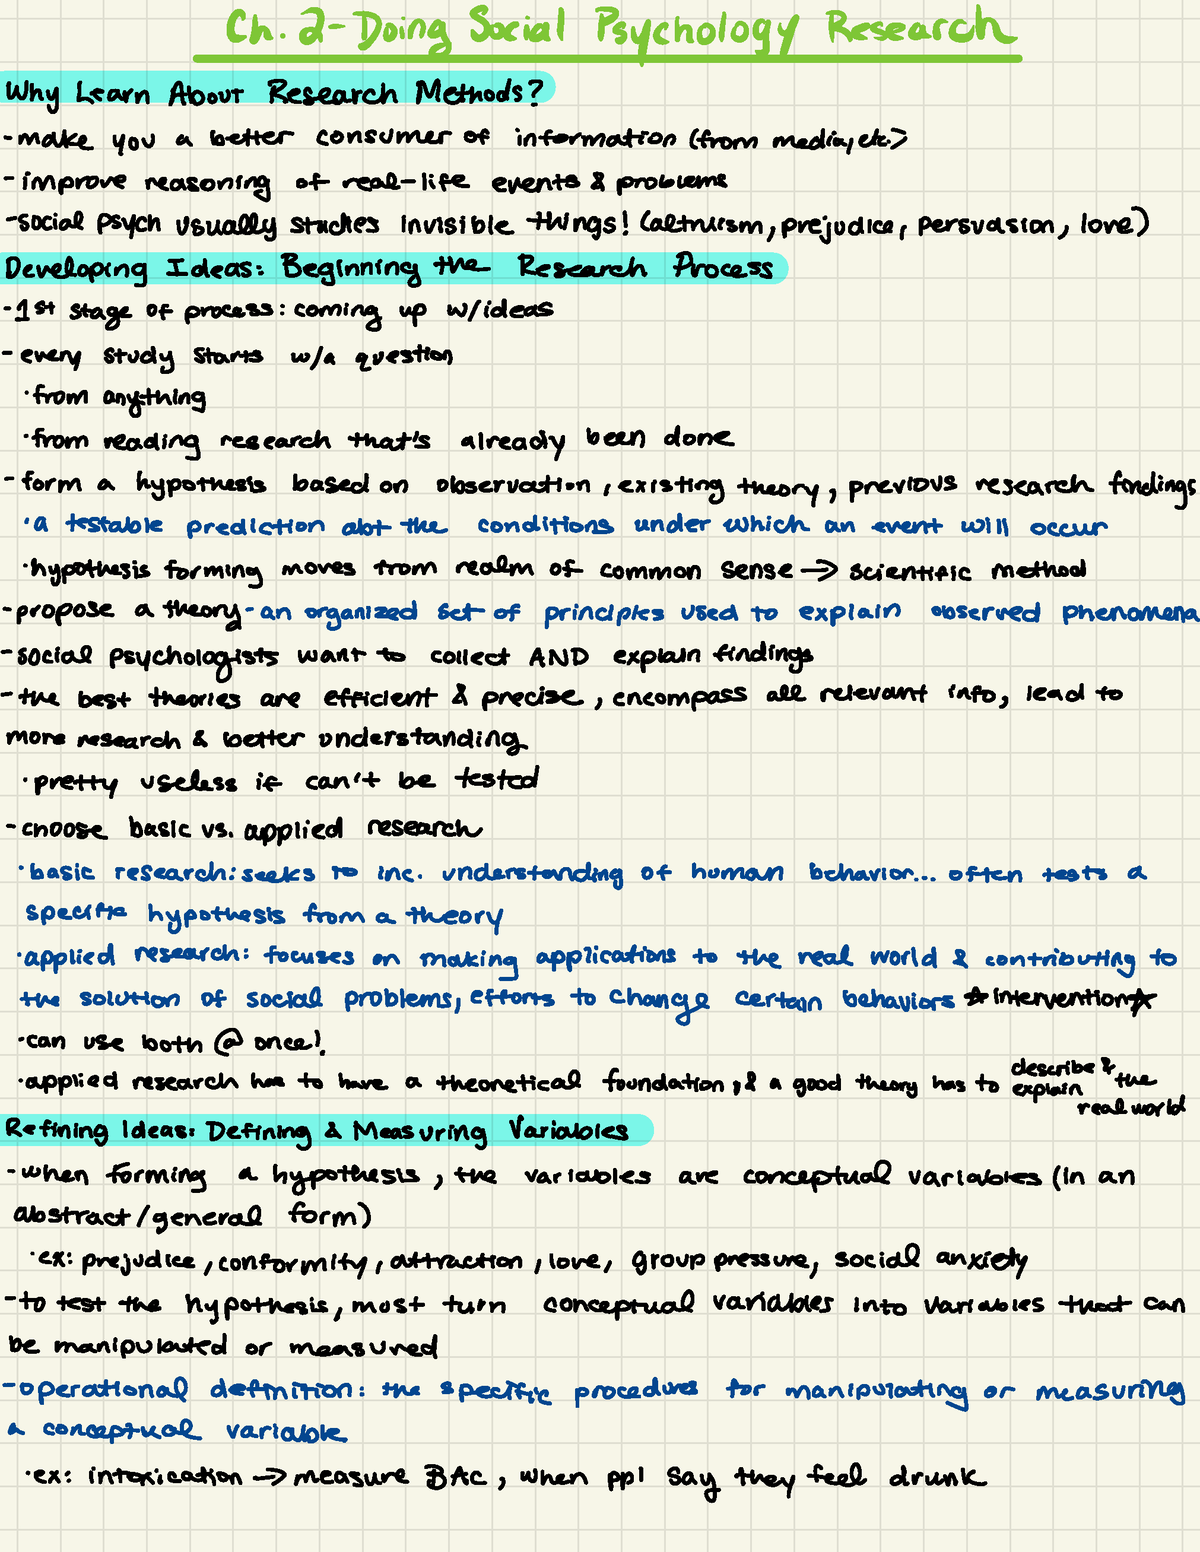 Ch. 2 - Doing Social Psychology Research
Why Learn About Research Methods?
- make you a better consumer of information (from media, etc.)
- improve reasoning of real-life events & problems
- social psych usually studies invisible things! (altruism, prejudice, persuasion, love)
Developing Ideas: Beginning the Research Process
- 1st stage of process: coming up w/ideas
- every study starts w/a question
· from anything
· from reading research that's already been done
- form a hypothesis based on observation, existing theory, previous research findings
· a testable prediction abt the conditions under which an event will occur
· hypothesis forming moves from realm of common sense → scientific method
- propose a theory - an organized set of principles used to explain observed phenomena
- social psychologists want to collect AND explain findings
- the best theories are efficient & precise, encompass all relevant info, lead to
more research & better understanding
· pretty useless if can't be tested
- choose basic vs. applied research
· basic research: seeks to inc. understanding of human behavior... often tests a
specific hypothesis from a theory
· applied research: focuses on making applications to the real world & contributing to
the solution of social problems, efforts to change certain behaviors ☆intervention☆
· can use both @ once!
· applied research has to have a theoretical foundation, & a good theory has to describe & explain the real world
Refining Ideas: Defining & Measuring Variables
- when forming a hypothesis, the variables are conceptual variables (in an
abstract/general form)
· ex: prejudice, conformity, attraction, love, group pressure, social anxiety
- to test the hypothesis, must turn conceptual variables into variables that can
be manipulated or measured
- operational definition: the specific procedures for manipulating or measuring
a conceptual variable
· ex: intoxication → measure BAC, when ppl say they feel drunk